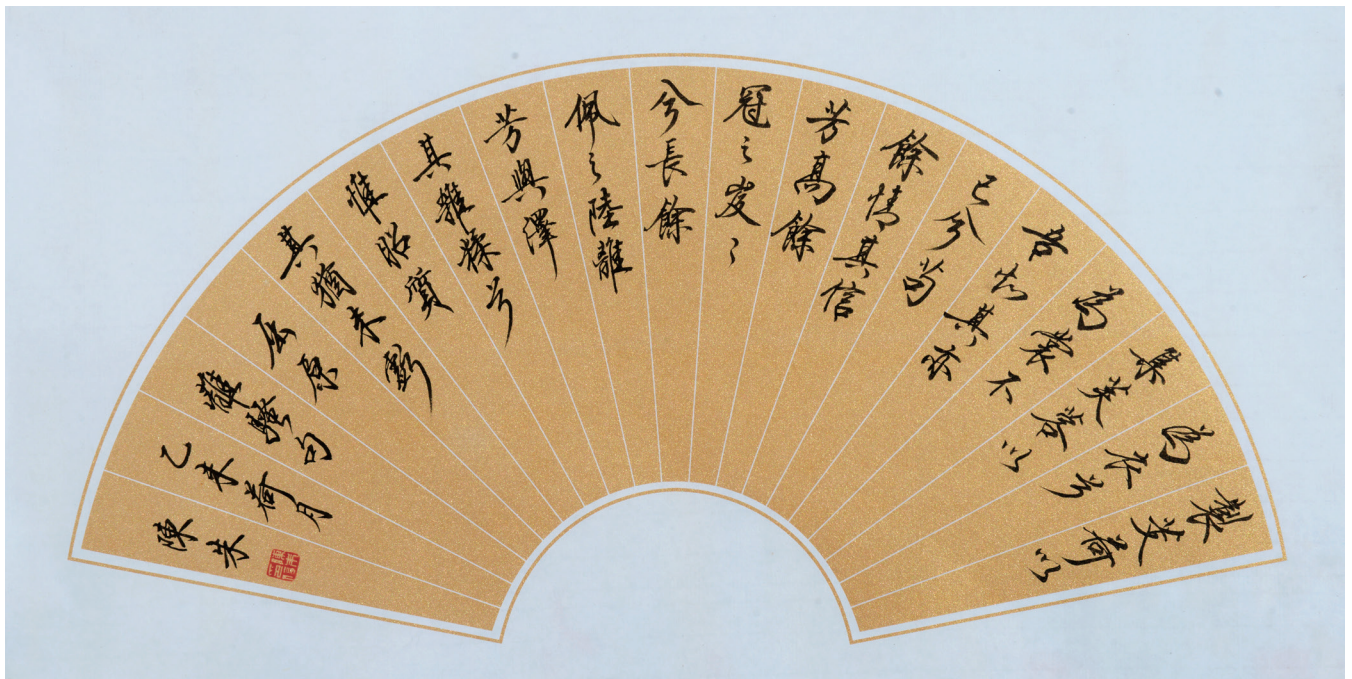 製芰荷以
為衣兮
集芙蓉以
為裳不
吾知其亦
已兮苟
餘情其信
芳高餘
冠之岌々
兮長餘
佩之陸離
芳與澤
其雜糅兮
惟昭質
其猶未虧
屈原
離騷句
乙未荷月
陳